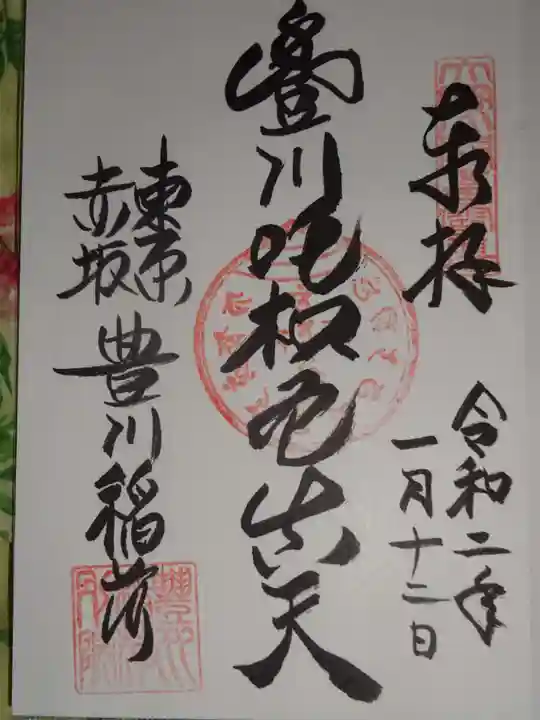 奉拝
令和二年
一月十二日
豐川吒枳尼真天
東京
赤坂
豊川稲荷